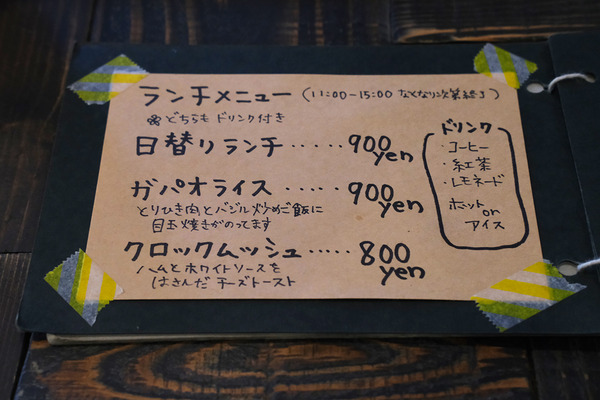 ランチメニュー (11:00-15:00 なくなり次第終了)
※どちらもドリンク付き
日替りランチ・・・・・900yen
ガパオライス・・・・・・900yen
とりひき肉とバジル炒めご飯に
目玉焼きがのってます
クロックムッシュ・・・・・800yen
ハムとホワイトソースを
はさんだチーズトースト
ドリンク
・コーヒー
・紅茶
・レモネード
ホット
or
アイス